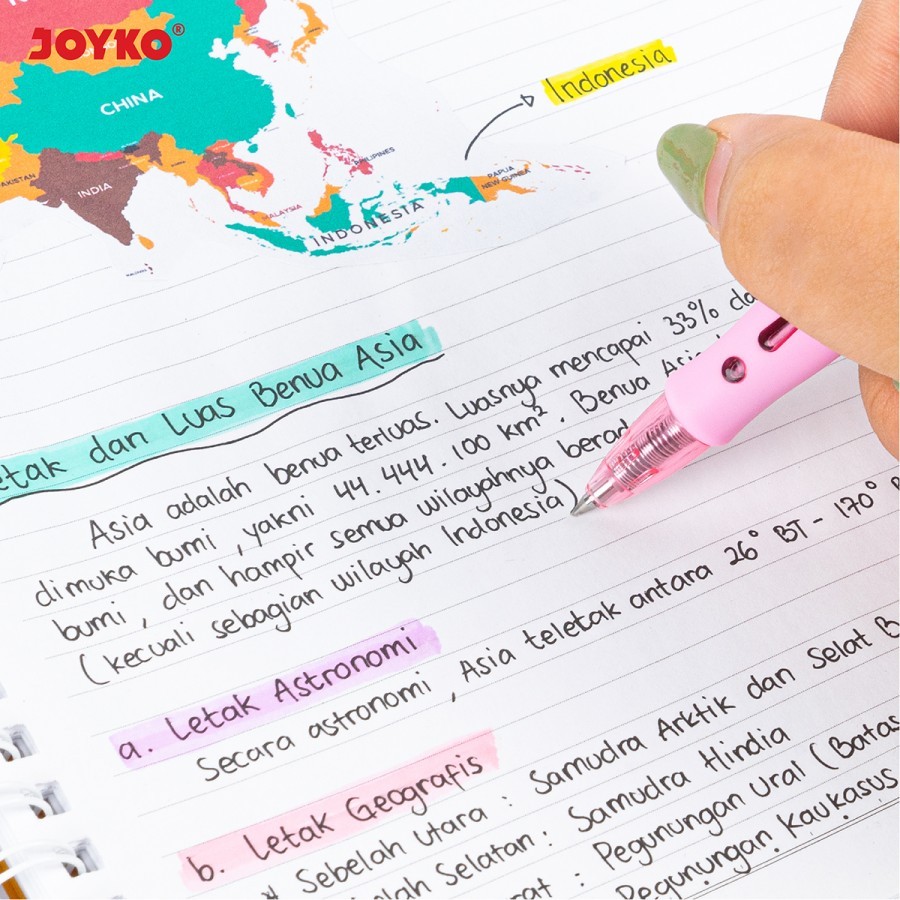 JOYKO®
CHINA
INDIA
PHILIPINES
MALAYSIA
INDONESIA
PAPUA
NEW GUINEA
Indonesia
etak dan Luas Benua Asia
Asia adalah benua terluas. Luasnya mencapai 33% da
dimuka bumi, yakni 44.444.100 km². Benua Asi
bumi, dan hampir semua wilayahnya berad
(kecuali sebagian wilayah Indonesia)
a. Letak Astronomi
Secara astronomi, Asia teletak antara 26° BT - 170° B
b. Letak Geografis
Sebelah Utara : Samudra Arktik dan Selat B
lah Selatan : Samudra Hindia
rat : Pegunungan Ural (Batas
Pegunungan Kaukasus